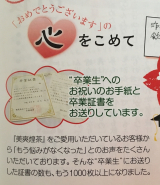 「おめでとうございます」の
心をこめて
"卒業生"への
お祝いのお手紙と
卒業証書を
お送りしています。
『爽爽煌茶』をご愛用いただいているお客様か
ら「もう悩みがなくなった」とのお声をたくさん
いただいております。そんな"卒業生"にお送り
した証書の数も、もう1000枚以上になりました。